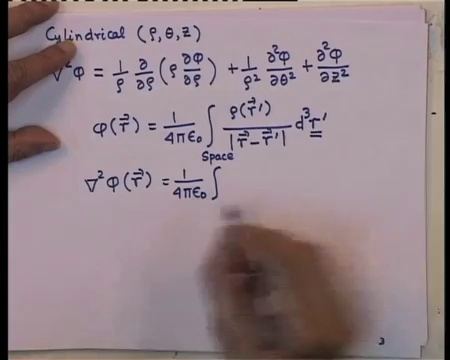 Cylindrical (ρ, θ, z)
∇²φ = 1/ρ ∂/∂ρ (ρ ∂φ/∂ρ) + 1/ρ² ∂²φ/∂θ² + ∂²φ/∂z²
φ(r⃗) = 1/4πε₀ ∫ ρ(r⃗′)/|r⃗ − r⃗′| d³r′
Space
∇²φ(r⃗) = 1/4πε₀ ∫
3